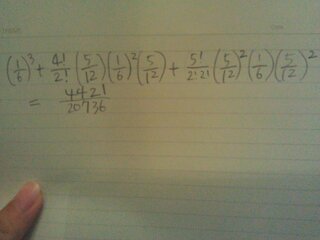 (1/6)³ + 4!/2! (5/12)(1/6)²(5/12) + 5!/2!2! (5/12)²(1/6)(5/12)²
= 4421/20736